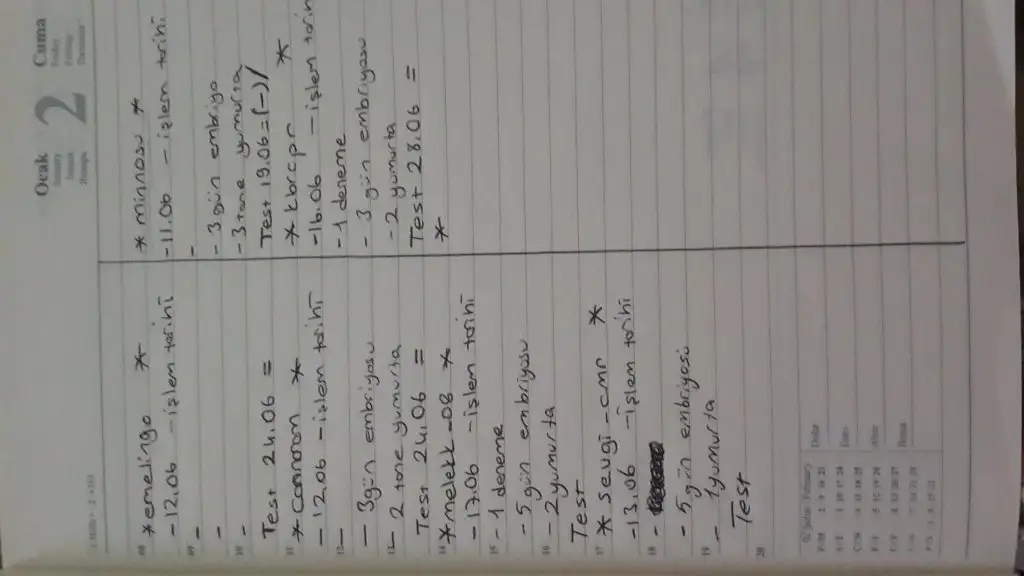 Ocak
2
Cuma
08 * emelingo *
- 12.06 - işlem tarihi
09 -
-
10 -
Test 24.06 =
11 * Connoron *
- 12.06 - işlem tarihi
12 -
- 3 gün embriyosu
13 - 2 tane yumurta
Test 24.06 =
14 * melekk-08 *
- 17.06 - işlem tarihi
15 - 1 deneme
- 5 gün embriyosu
16 - 2 yumurta
Test
17 * sevgi-cmr *
- 13.06 - işlem tarihi
18 -
- 5 gün embriyosu
19 - 1 yumurta
Test
20
* minnosu *
- 11.06 - işlem tarihi
-
- 3 gün embriyo
- 3 tane yumurta
Test 19.06 = (-)/
* kbrcpr *
- 16.06 - işlem tarih
- 1 deneme
- 3 gün embriyosu
- 2 yumurta
Test 28.06 =
*